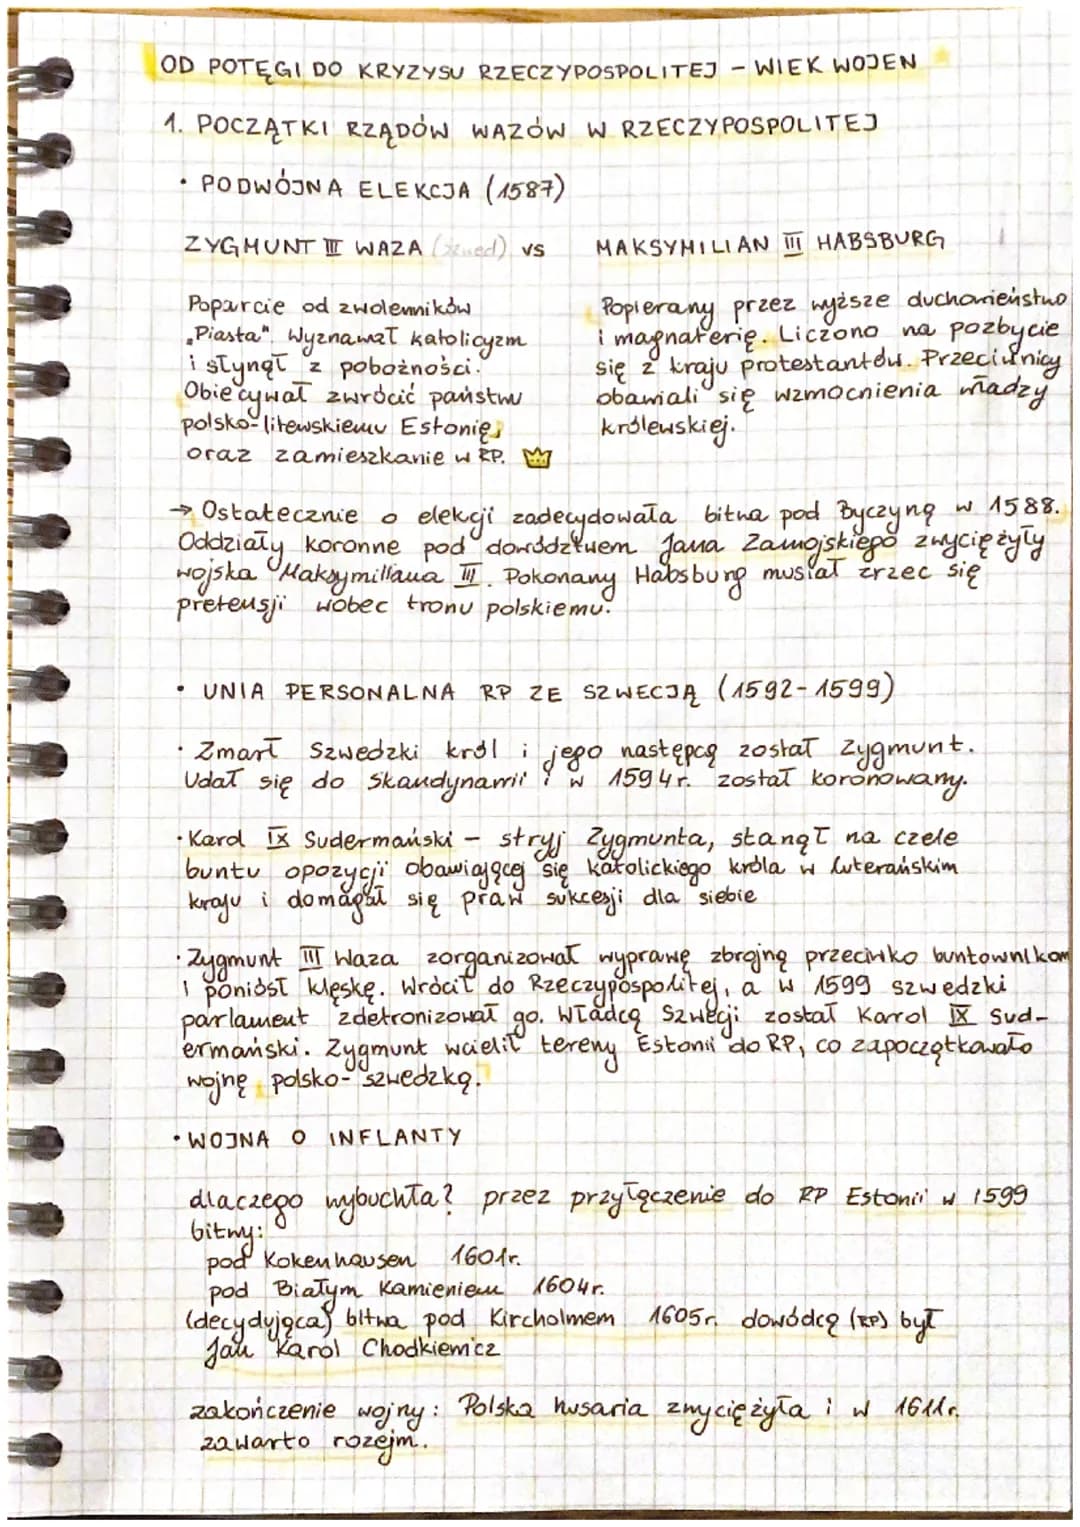 OD POTĘGI DO KRYZYSU RZECZYPOSPOLITEJ - WIEK WOJEN
1. POCZĄTKI RZĄDÓW WAZÓW W RZECZYPOSPOLITEJ
• PODWÓJNA ELEKCJA (1587)
ZYGMUNT III WAZA (szwed) vs
Poparcie od zwolenników
"Piasta". Wyznawał katolicyzm
i słynął z pobożności.
Obiecywał zwrócić państwu
polsko-litewskiemu Estonię,
oraz zamieszkanie w RP.
MAKSYMILIAN III HABSBURG
Popierany przez wyższe duchowieństwo
i magnaterię. Liczono na pozbycie
się z kraju protestantów. Przeciwnicy
obawiali się wzmocnienia władzy
królewskiej.
→ Ostatecznie o elekcji zadecydowała bitwa pod Byczyną w 1588.
Oddziały koronne pod dowództwem Jana Zamojskiego zwyciężyły
wojska Maksymiliana III. Pokonany Habsburg musiał zrzec się
pretensji wobec tronu polskiemu.
• UNIA PERSONALNA RP ZE SZWECJĄ (1592-1599)
• Zmarł Szwedzki król i jego następcą został Zygmunt.
Udał się do Skandynawii i w 1594r. został koronowany.
• Karol IX Sudermański - stryj Zygmunta, stanął na czele
buntu opozycji obawiającej się katolickiego króla w luterańskim
kraju i domagał się praw sukcesji dla siebie
• Zygmunt III Waza zorganizował wyprawę zbrojną przeciwko buntownikom
i poniósł klęskę. Wrócił do Rzeczypospolitej, a w 1599 szwedzki
parlament zdetronizował go. Władcą Szwecji został Karol IX Sud-
ermański. Zygmunt wcielił tereny Estonii do RP, co zapoczątkowało
wojnę polsko-szwedzką.
• WOJNA O INFLANTY
dlaczego wybuchła? przez przyłączenie do RP Estonii w 1599
bitwy:
pod Kokenhausen 1601r.
pod Białym Kamieniem 1604r.
(decydująca) bitwa pod Kircholmem 1605r. dowódcą (RP) był
Jan Karol Chodkiewicz
zakończenie wojny: Polska husaria zwyciężyła i w 1611r.
zawarto rozejm.